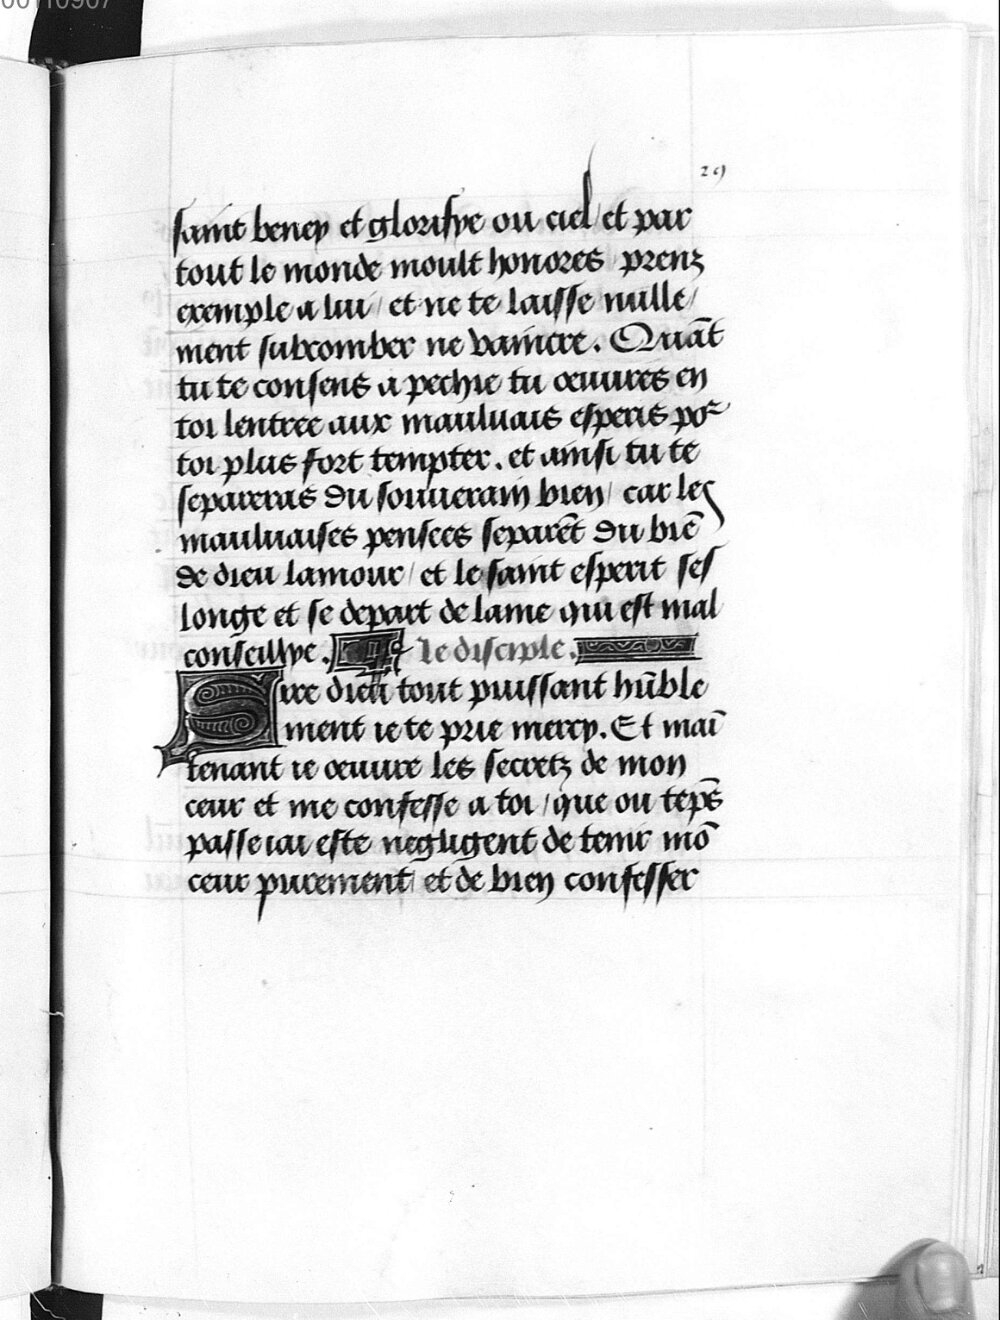 00110907
29
saint beney et glorifye ou ciel / et par
tout le monde moult honores prenz
exemple a lui / et ne te laisse nulle /
ment subcomber ne vaincre. Quāt
tu te consens a pechie tu œuures en
toi lentree aux mauluais esperis por
toi plus fort tempter. et ainsi tu te
separeras du souuerain bien / car les
mauluaises pensees separēt du biē
de dieu lamour / et le saint esperit ses
longe et se depart de lame qui est mal
conseillye. le disciple.
Sire dieu tout puissant hūble
ment ie te prie mercy. Et mai
tenant ie œuure les secretz de mon
ceur et me confesse a toi / que ou tēps
passe iai este negligent de tenir mō
ceur purement / et de bien confesser